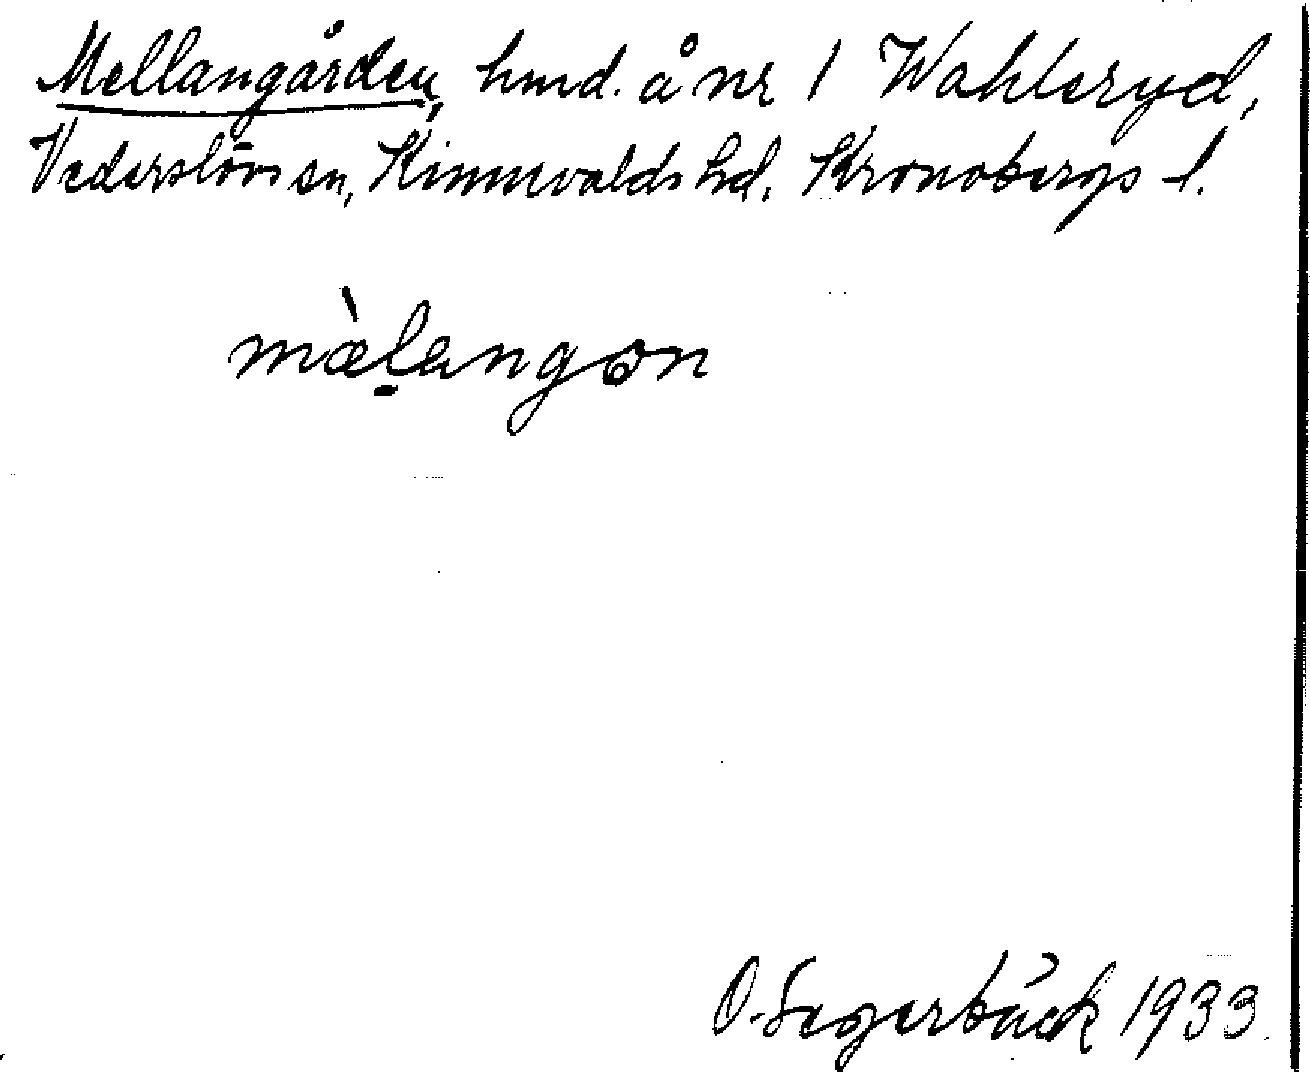 Mellangården, hmd. å nr 1 Wahlsryd,
Vederslövs sn, Kinnevalds hd. Kronobergs l.
mæ̀l̠angɷn
O. Segerbäck 1933